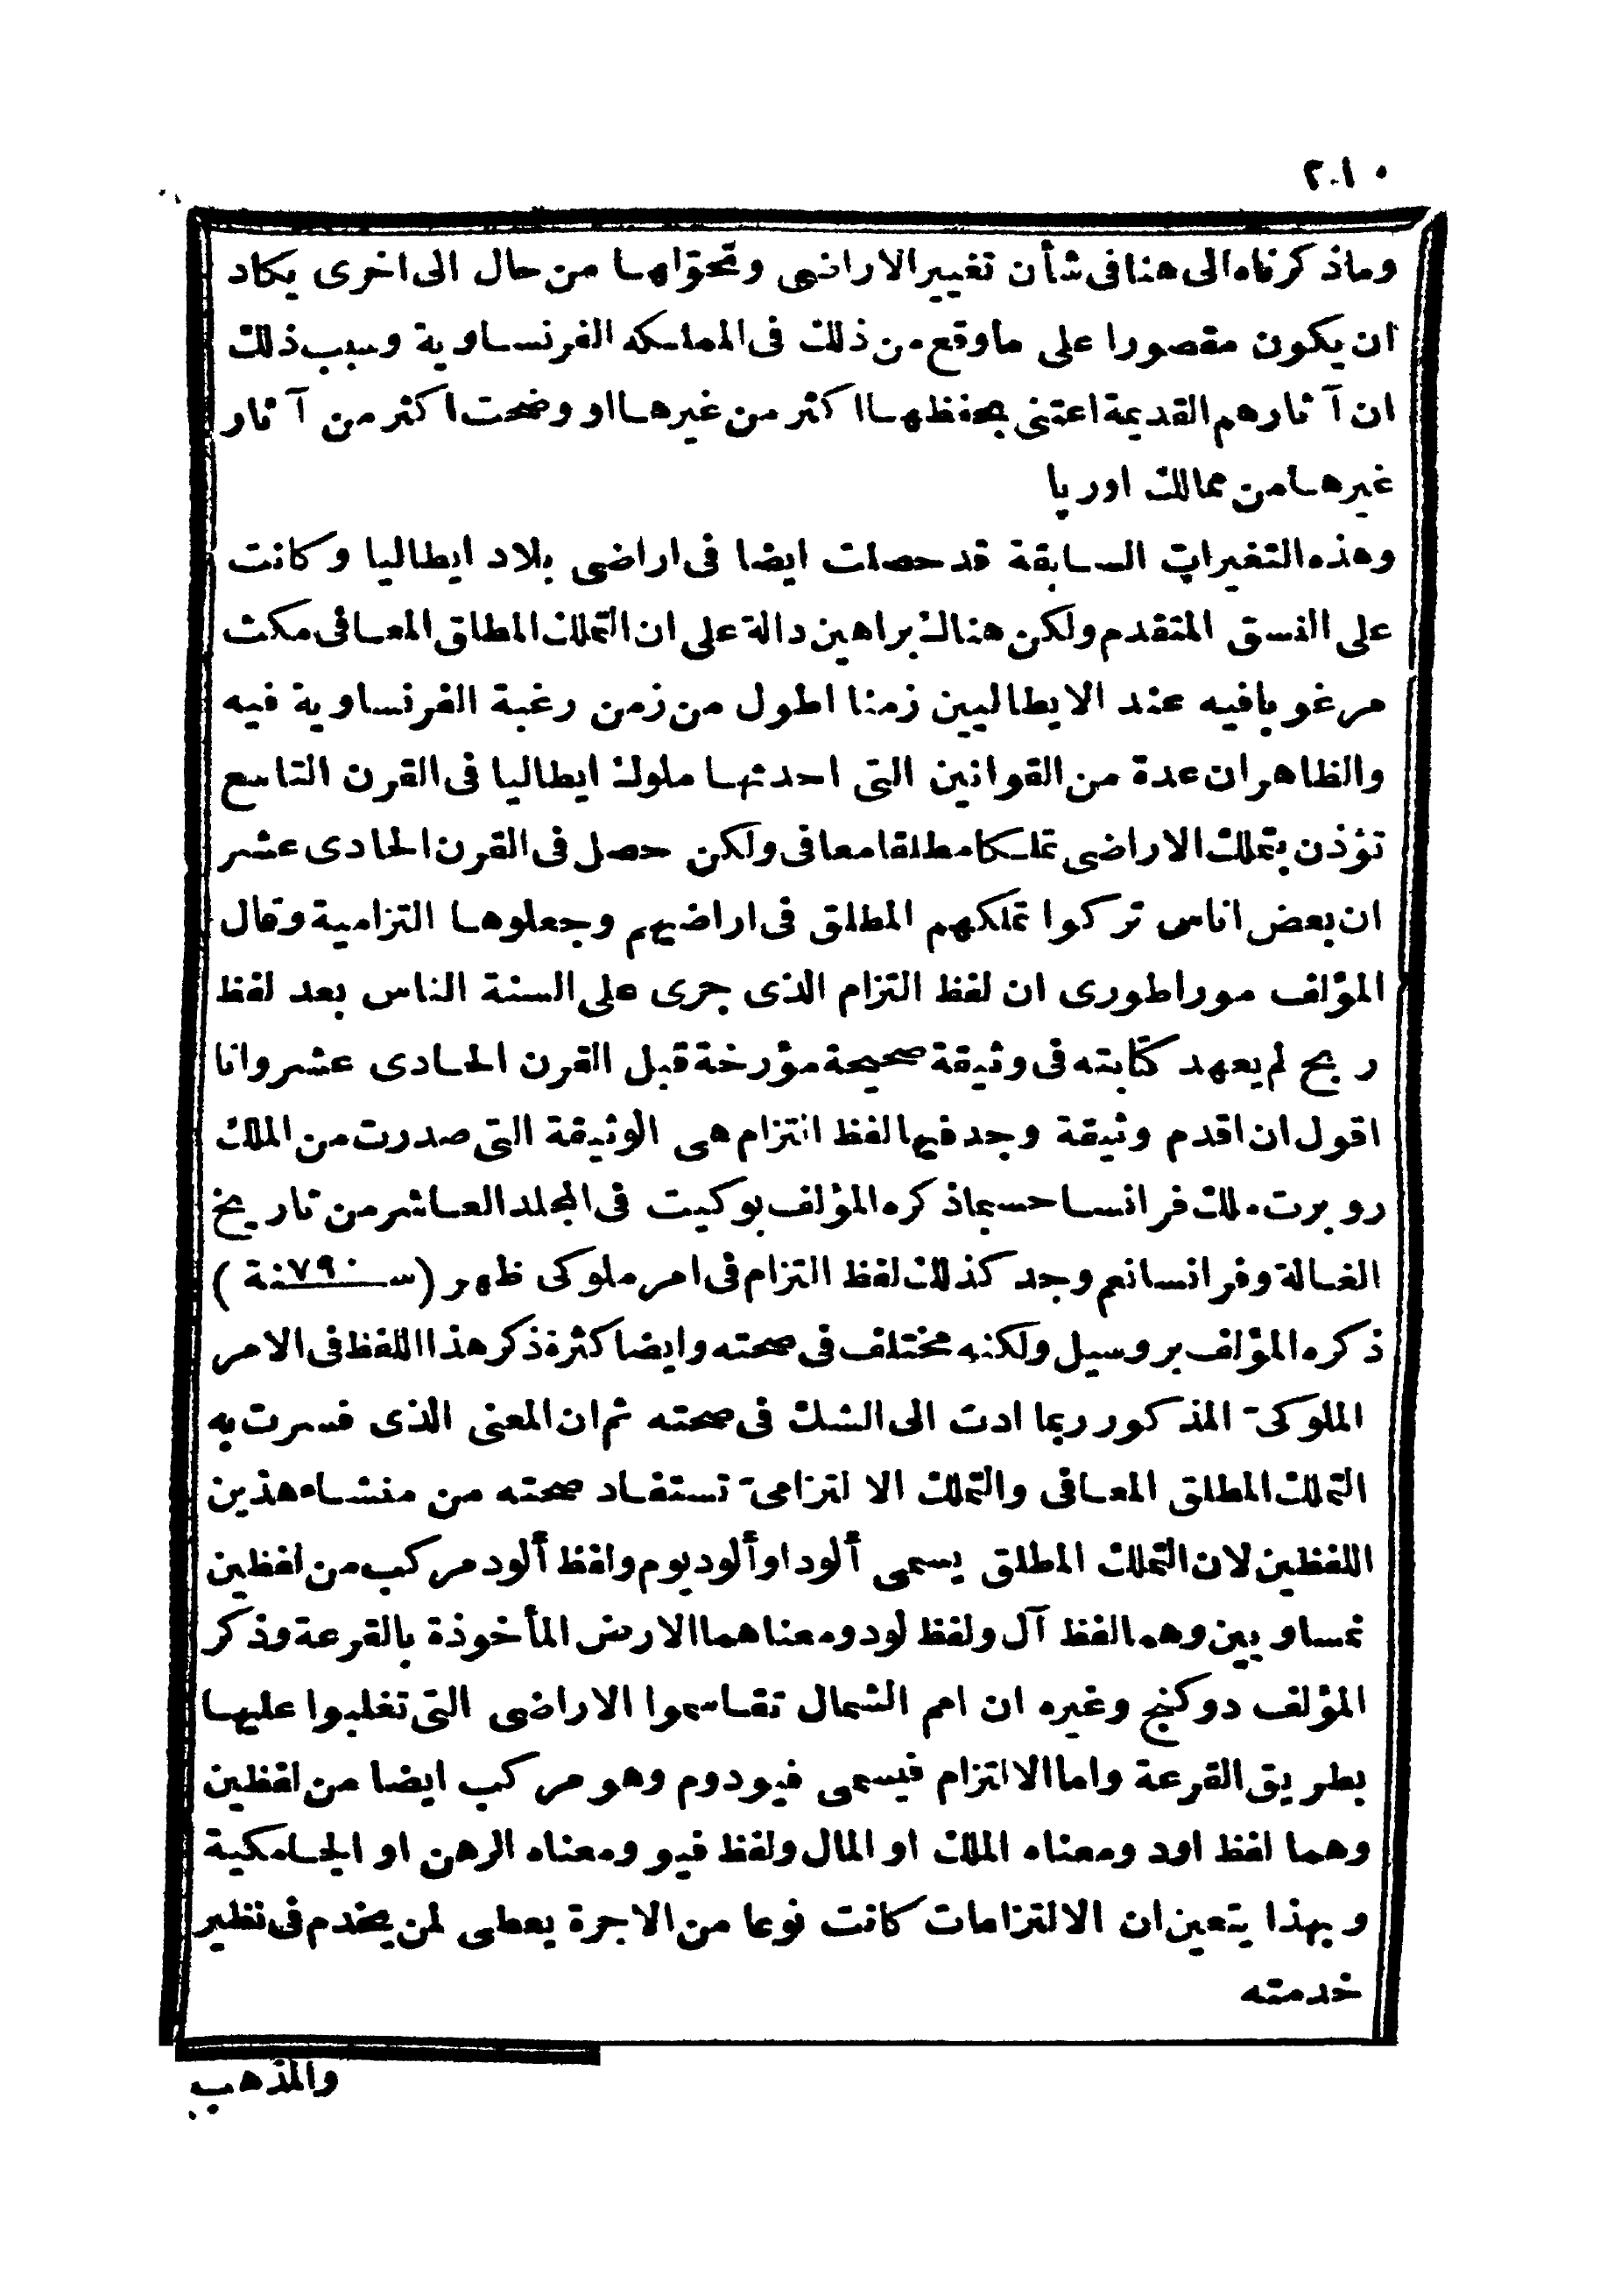 ٢٠١٠
وماذكرناه الى هنا فى شأن تغيير الاراضى وتحوّلها من حال الى اخرى يكاد
ان يكون مقصورا على ما وقع من ذلك فى المملكه الفرنساوية وسبب ذلك
ان آثارهم القديمة اعتنى بحفظها اكثر من غيرها او وضحت اكثر من آثار
غيرها من ممالك اوربا
وهذه التغيرات السابقة قد حصلت ايضا فى اراضى بلاد ايطاليا وكانت
على النسق المتقدم ولكن هناك براهين دالة على ان التملك المطلق المعافى مكث
مرغوبا فيه عند الايطاليين زمنا اطول من زمن رغبة الفرنساوية فيه
والظاهر ان عدة من القوانين التى احدثها ملوك ايطاليا فى القرن التاسع
تؤذن بتملك الاراضى تملكا مطلقا معافى ولكن حصل فى القرن الحادى عشر
ان بعض اناس تركوا تملكهم المطلق فى اراضيهم وجعلوها التزامية وقال
المؤلف موراطورى ان لفظ التزام الذى جرى على السنة الناس بعد لفظ
ربح لم يعهد كتابته فى وثيقة صحيحة مؤرخة قبل القرن الحادى عشر وانا
اقول ان اقدم وثيقة وجد فيها لفظ التزام هى الوثيقة التى صدرت من الملك
روبرت ملك فرانسا حسبما ذكره المؤلف بوكيت فى المجلد العاشر من تاريخ
الغالة وفرانسا نعم وجد كذلك لفظ التزام فى امر ملوكى ظهر (سنة ٧٩٠)
ذكره المؤلف بروسيل ولكنه مختلف فى صحته وايضا كثرة ذكر هذا اللفظ فى الامر
الملوكى المذكور ربما ادت الى الشك فى صحته ثم ان المعنى الذى فسرت به
التملك المطلق المعافى والتملك الالتزامى تستفاد صحته من منشاء هذين
اللفظين لان التملك المطلق يسمى ألود او ألوديوم ولفظ ألود مركب من لفظين
نمساويين وهما لفظ آل ولفظ لود ومعناهما الارض المأخوذة بالقرعة وذكر
المؤلف دوكنج وغيره ان امم الشمال تقاسموا الاراضى التى تغلبوا عليها
بطريق القرعة واما الالتزام فيسمى فيودوم وهو مركب ايضا من لفظين
وهما لفظ اود ومعناه الملك او المال ولفظ فيو ومعناه الرهن او الجامكية
وبهذا يتعين ان الالتزامات كانت نوعا من الاجرة يعطى لمن يخدم فى نظير
خدمته
والمذهب